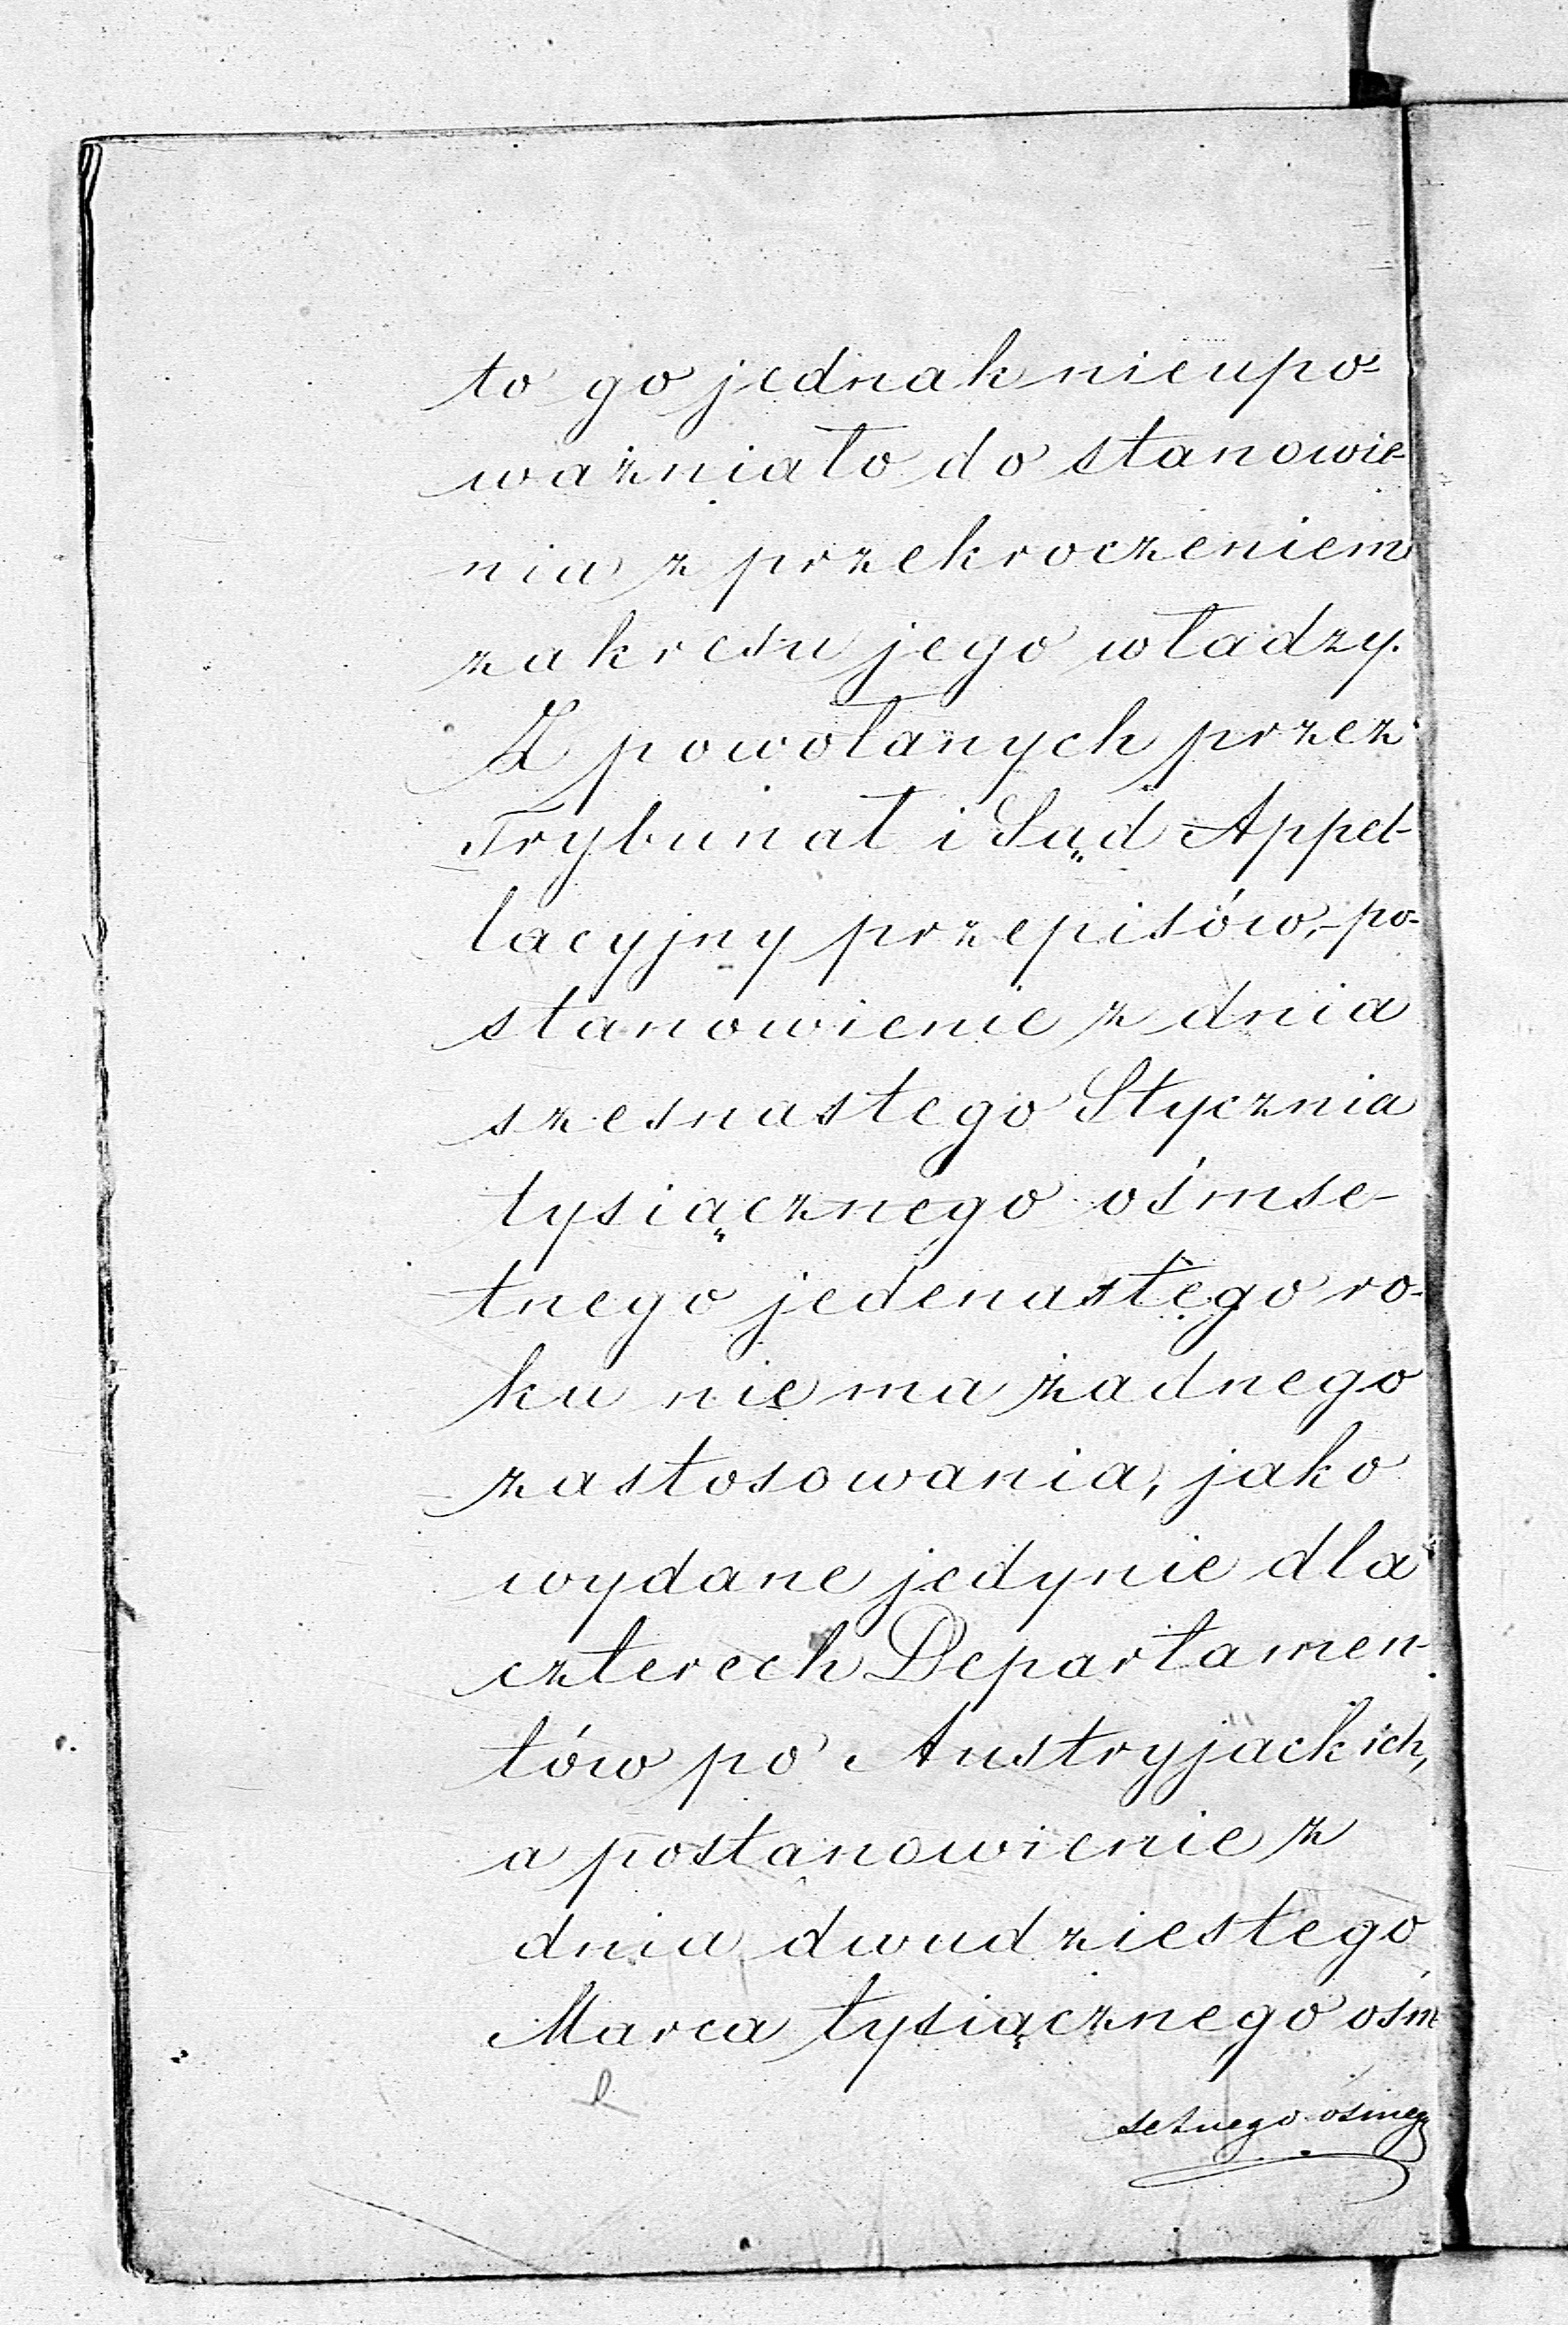 to go jednak nieupo-
ważniało do stanowie-
nia z przekroczeniem
zakresu jego władzy.
Z powołanych przez
Trybunał i Sąd Appel-
lacyjny przepisów, - po-
stanowienie z dnia
szesnastego Stycznia
tysiącznego óśmse-
tnego jedenastego ro-
ku nie ma żadnego
zastosowania, jako
wydane jedynie dla
czterech Departamen-
tów po Austryjackich,
a postanowienie z
dnia dwudziestego
Marca tysiącznego ośm
setnego ósmego